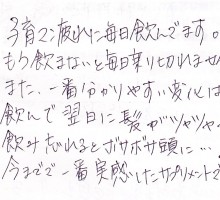 今育マン疲れに毎日飲んでます。
もう飲まないと毎日乗り切れませ
また、一番分かりやすい変化は
飲んで翌日に髪がツヤツヤ.
飲み忘れるとボサボサ頭に…
今までで一番実感したサプリメントで